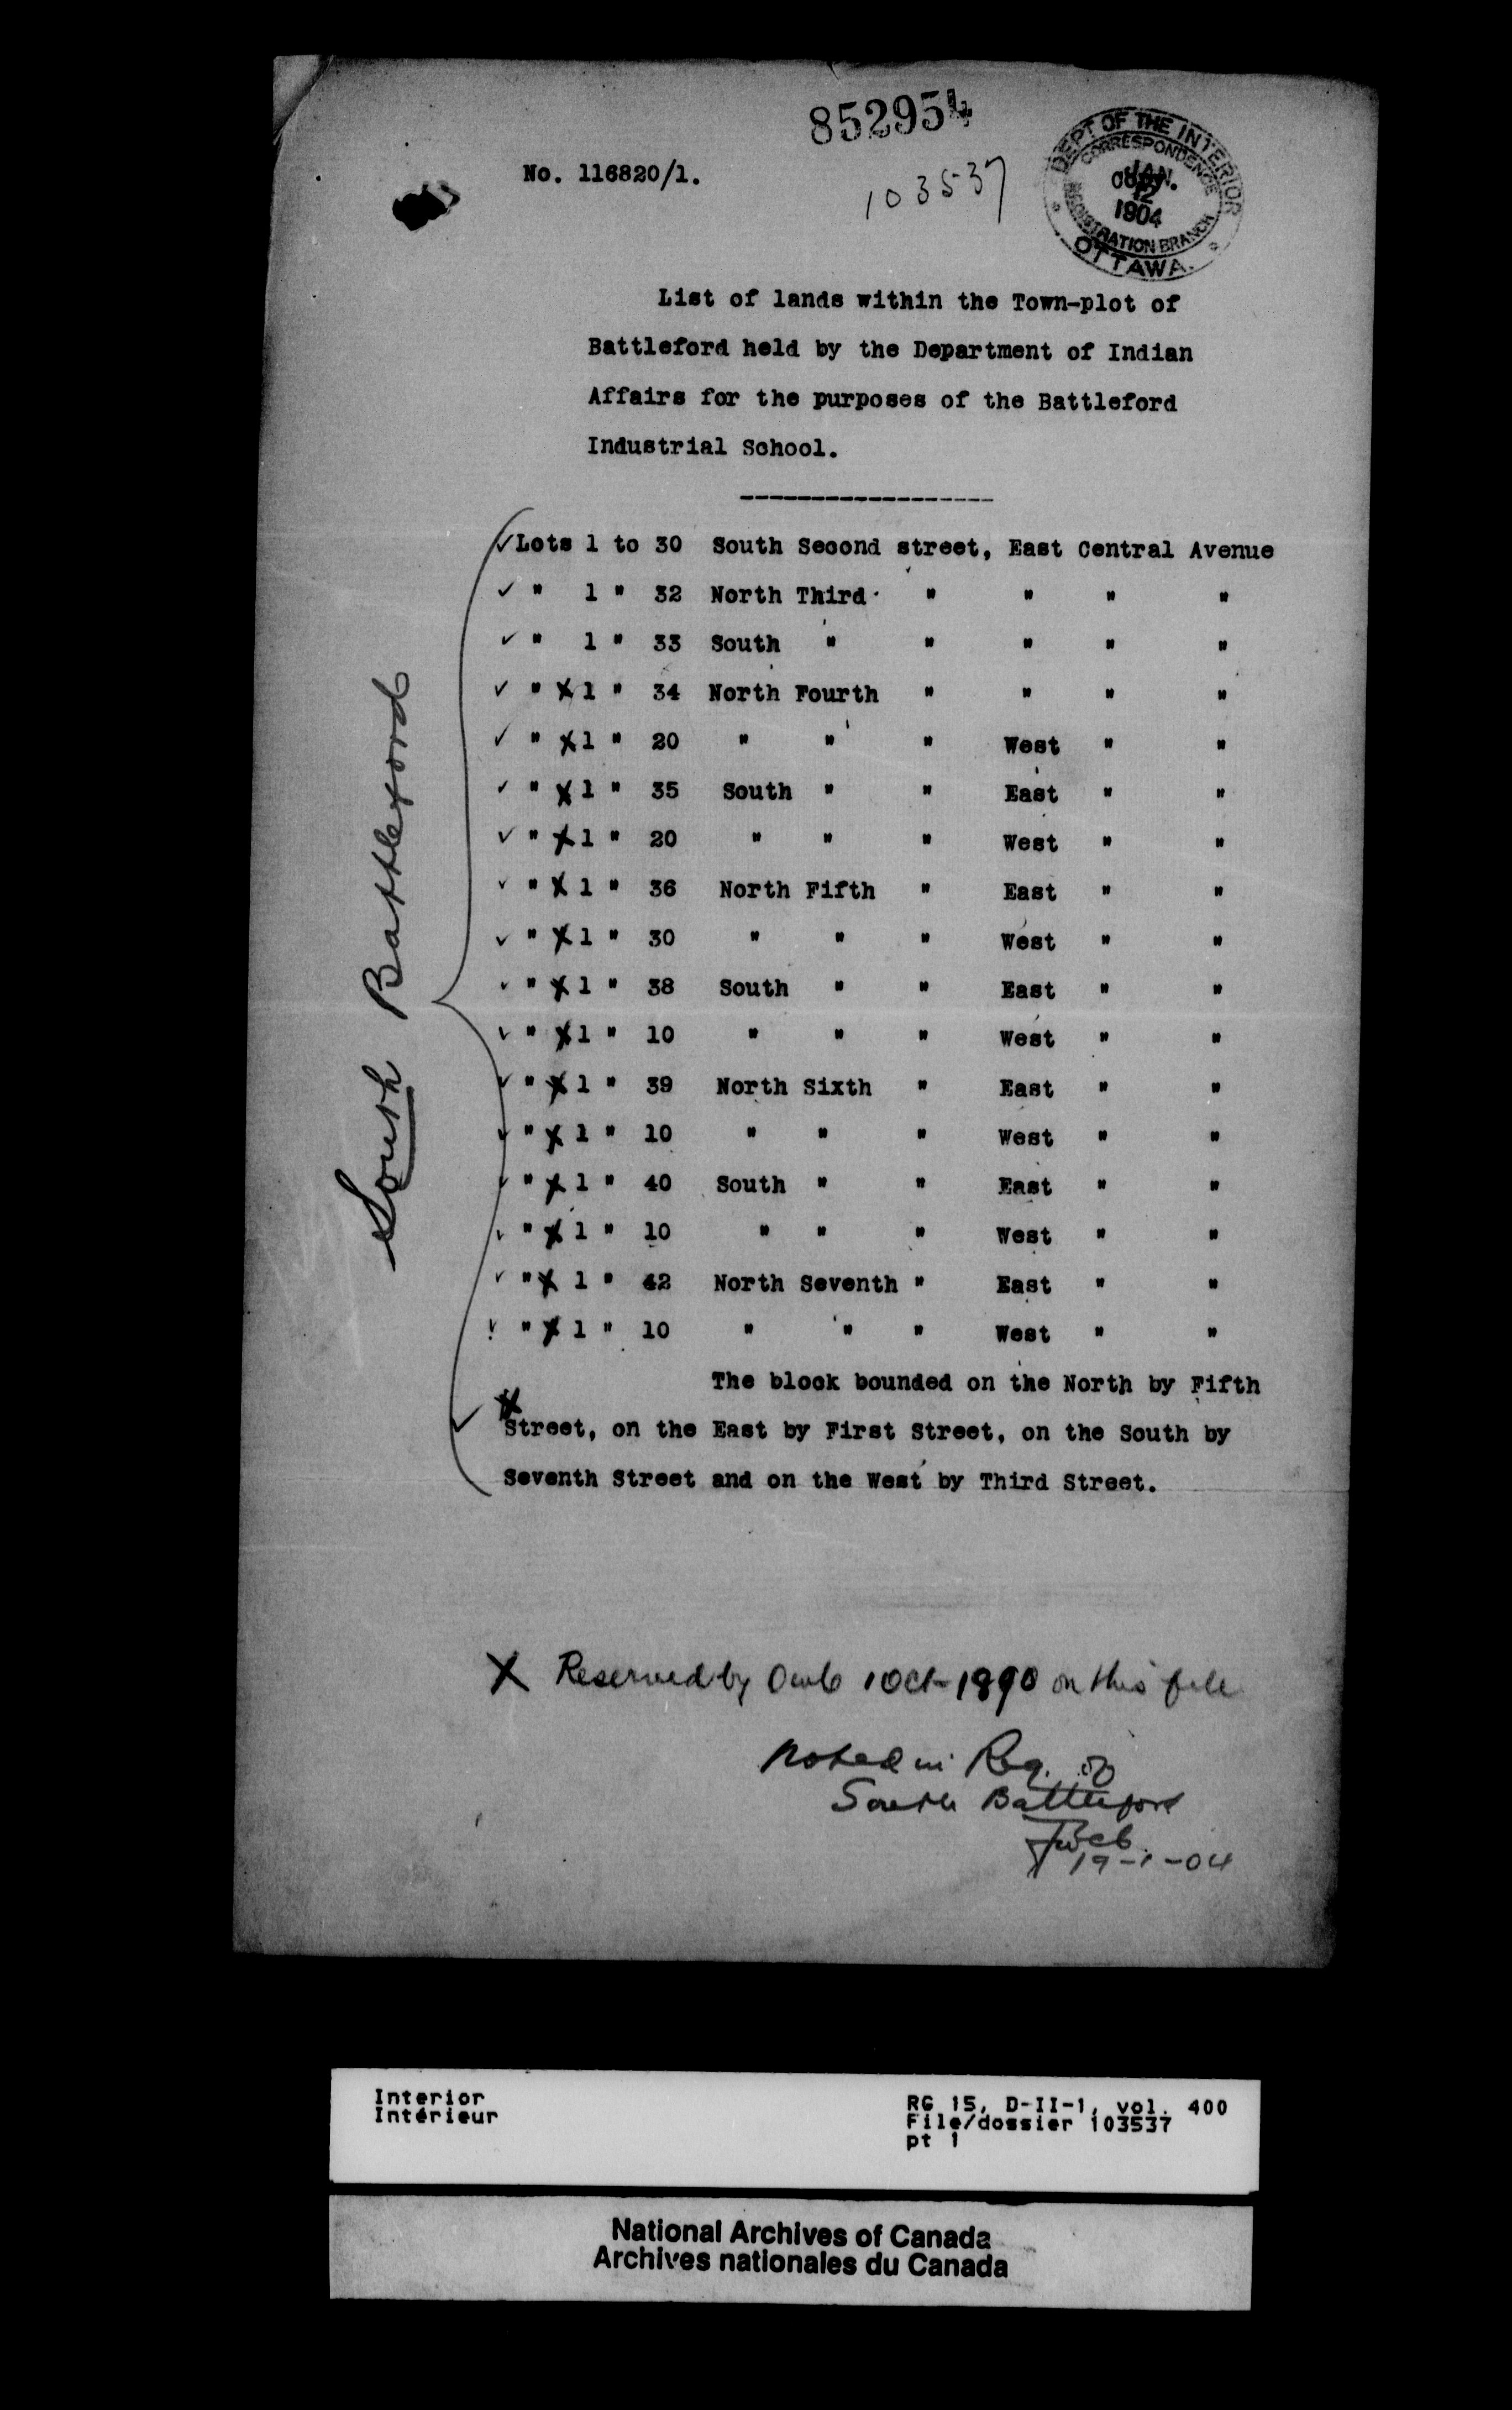 852954
No. 116820/1.
103537
DEPT OF THE INTERIOR
CORRESPONDENCE
JAN.
12
1904
REGISTRATION BRANCH
OTTAWA.
List of lands within the Town-plot of
Battleford held by the Department of Indian
Affairs for the purposes of the Battleford
Industrial School.
-------------------
✓ Lots 1 to 30 South Second street, East Central Avenue
✓ " 1 " 32 North Third " " " "
✓ " 1 " 33 South " " " " "
✓ " X 1 " 34 North Fourth " " " "
✓ " X 1 " 20 " " " West " "
✓ " X 1 " 35 South " " East " "
✓ " X 1 " 20 " " " West " "
✓ " X 1 " 36 North Fifth " East " "
✓ " X 1 " 30 " " " West " "
✓ " X 1 " 38 South " " East " "
✓ " X 1 " 10 " " " West " "
✓ " X 1 " 39 North Sixth " East " "
✓ " X 1 " 10 " " " West " "
✓ " X 1 " 40 South " " East " "
✓ " X 1 " 10 " " " West " "
✓ " X 1 " 42 North Seventh " East " "
✓ " X 1 " 10 " " " West " "
The block bounded on the North by Fifth
✓ X Street, on the East by First Street, on the South by
Seventh Street and on the West by Third Street.
South Battleford
X Reserved by 1 Oct- 1890 on this file
Noted in Reg. of
South Battleford
19-1-04
Interior
Intérieur
RG 15, D-II-1, vol. 400
File/dossier 103537
pt 1
National Archives of Canada
Archives nationales du Canada